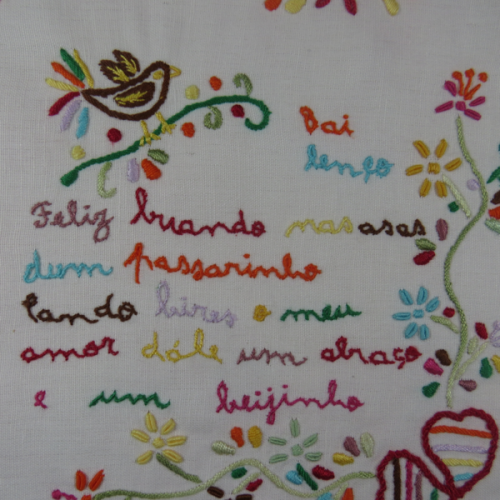 Bai
lenço
Feliz buando nas asas
dum passarinho
Cando bires o meu
amor dále um abraço
e um beijinho